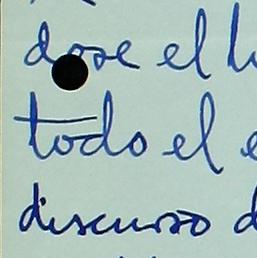 dose el
todo el
discurso